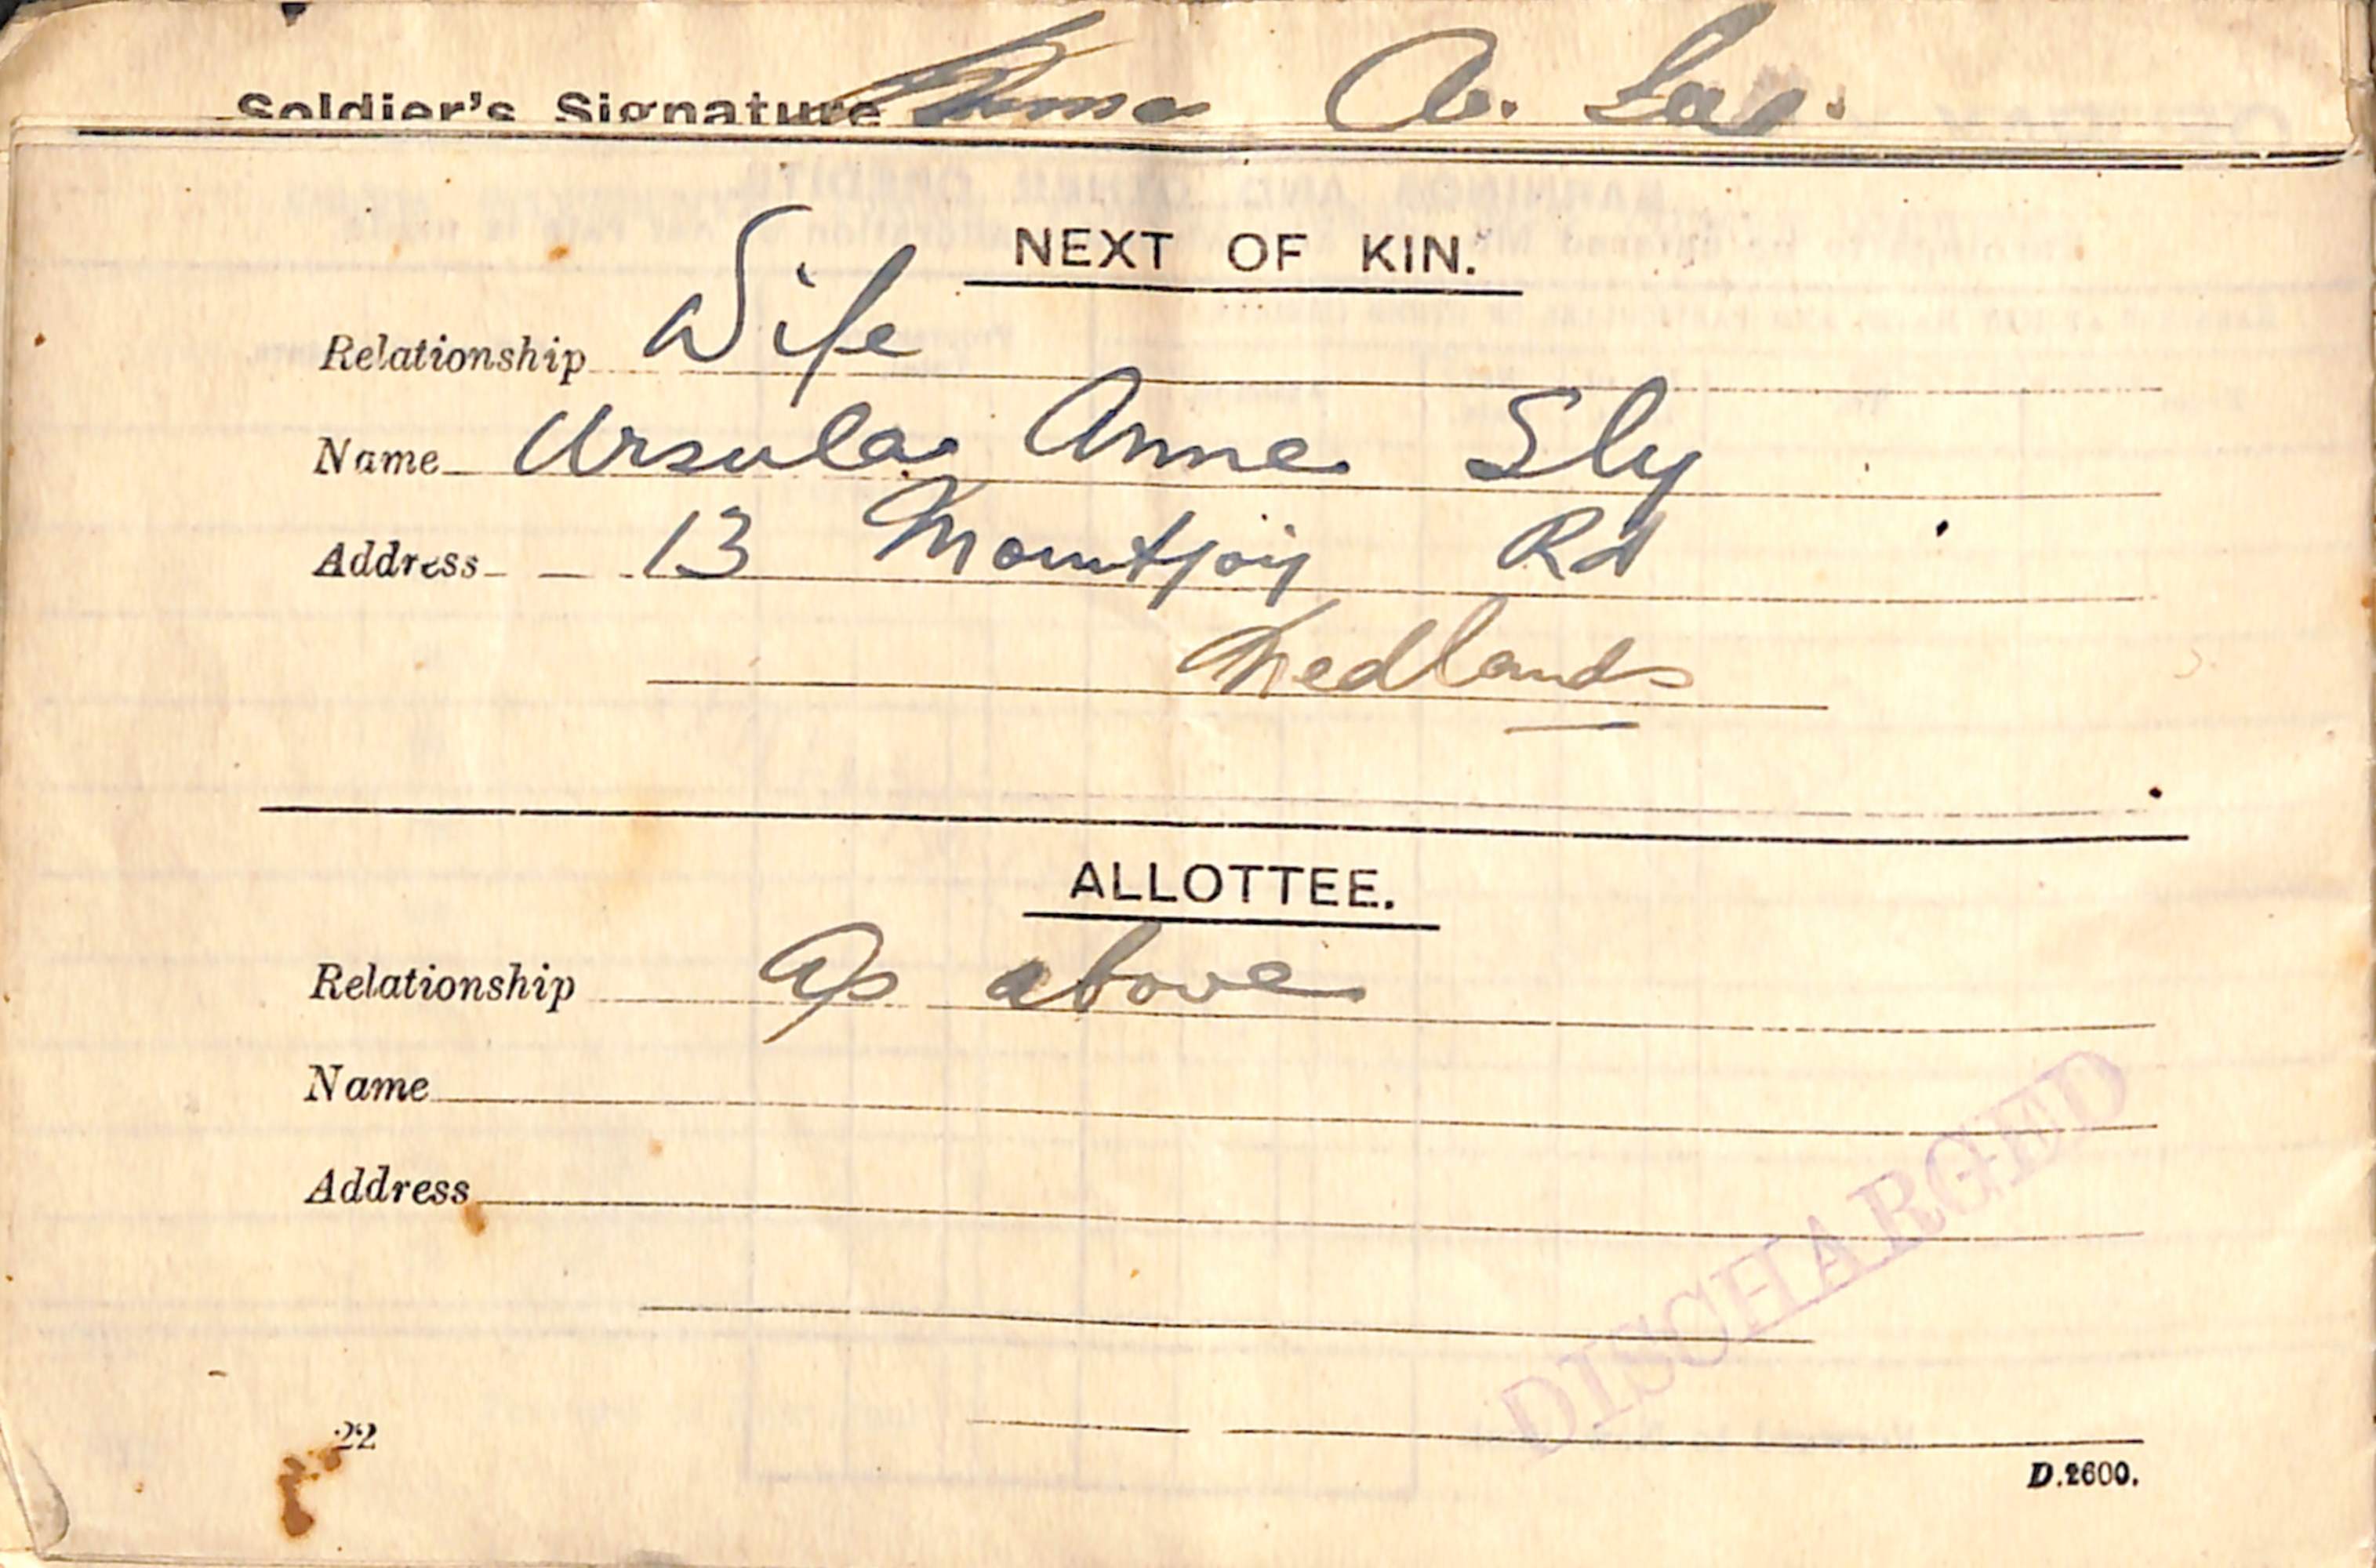 Soldier's Signature A.
NEXT OF KIN.
Relationship Wife
Name Ursula Anne Sly
Address 13 Mountjoy Rd
Nedlands
ALLOTTEE.
Relationship As above
Name
Address
DISCHARGED
22
D.2600.